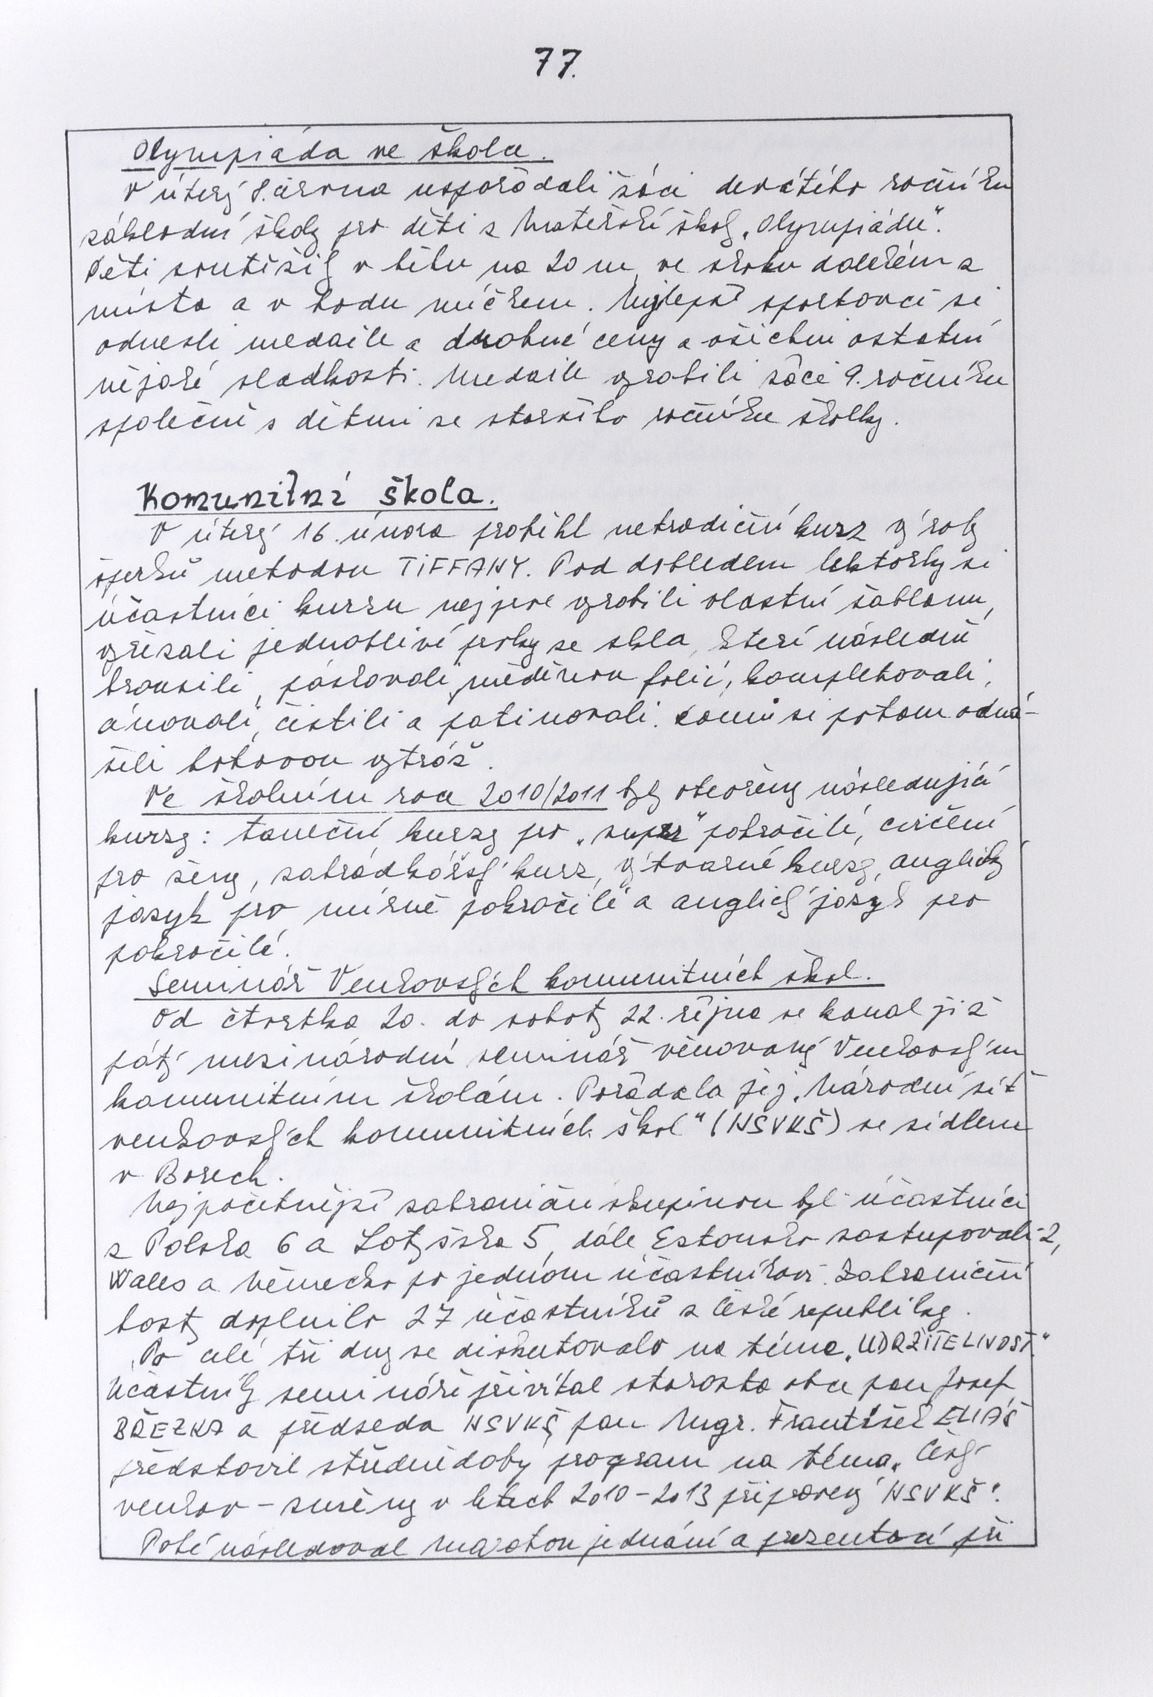 77.
Olympiáda ve škole.
V úterý 8. června uspořádali žáci devátého ročníku
základní školy pro děti z Mateřské školy „Olympiádu“.
Děti soutěžily v běhu na 20 m, ve skoku dalekém z
místa a v hodu míčkem. Nejlepší sportovci si
odnesli medaile a drobné ceny a všichni ostatní
nějaké sladkosti. Medaile vyrobili žáci 9. ročníku
společně s dětmi ze staršího ročníku školky.
Komunitní škola.
V úterý 16. února proběhl netradiční kurz výroby
šperků metodou TIFFANY. Pod dohledem lektorky si
účastníci kurzu nejprve vyrobili vlastní šablonu,
vyřezali jednotlivé prvky ze skla, které následně
brousili, páskovali měděnou folií, kompletovali,
cínovali, čistili a patinovali. Domů si potom odná-
šeli hotovou vitráž.
Ve školním roce 2010/2011 byly otevřeny následující
kurzy: taneční kurzy pro „super“ pokročilé, cvičení
pro ženy, zahrádkářský kurz, výtvarné kurzy, anglický
jazyk pro mírně pokročilé a anglický jazyk pro
pokročilé.
Seminář Venkovských komunitních škol.
Od čtvrtka 20. do soboty 22. října se konal již
pátý mezinárodní seminář věnovaný Venkovským
komunitním školám. Pořádala jej „Národní síť
venkovských komunitních škol“ (NSVKŠ) se sídlem
v Borech.
Nejpočetnější zahraniční skupinou byli účastníci
z Polska 6 a Lotyšska 5, dále Estonsko zastupovali 2,
Wales a Německo po jednom účastníkovi. Zahraniční
hosty doplnilo 27 účastníků z České republiky.
Po celé tři dny se diskutovalo na téma „UDRŽITELNOST“
Účastníky semináře přivítal starosta obce pan Josef
BŘEZKA a předseda NSVKŠ pan Mgr. František ELIÁŠ
představil střednědobý program na téma „Český
venkov – směny v letech 2010–2013 připravený NSVKŠ“.
Poté následoval maraton jednání a prezentací při